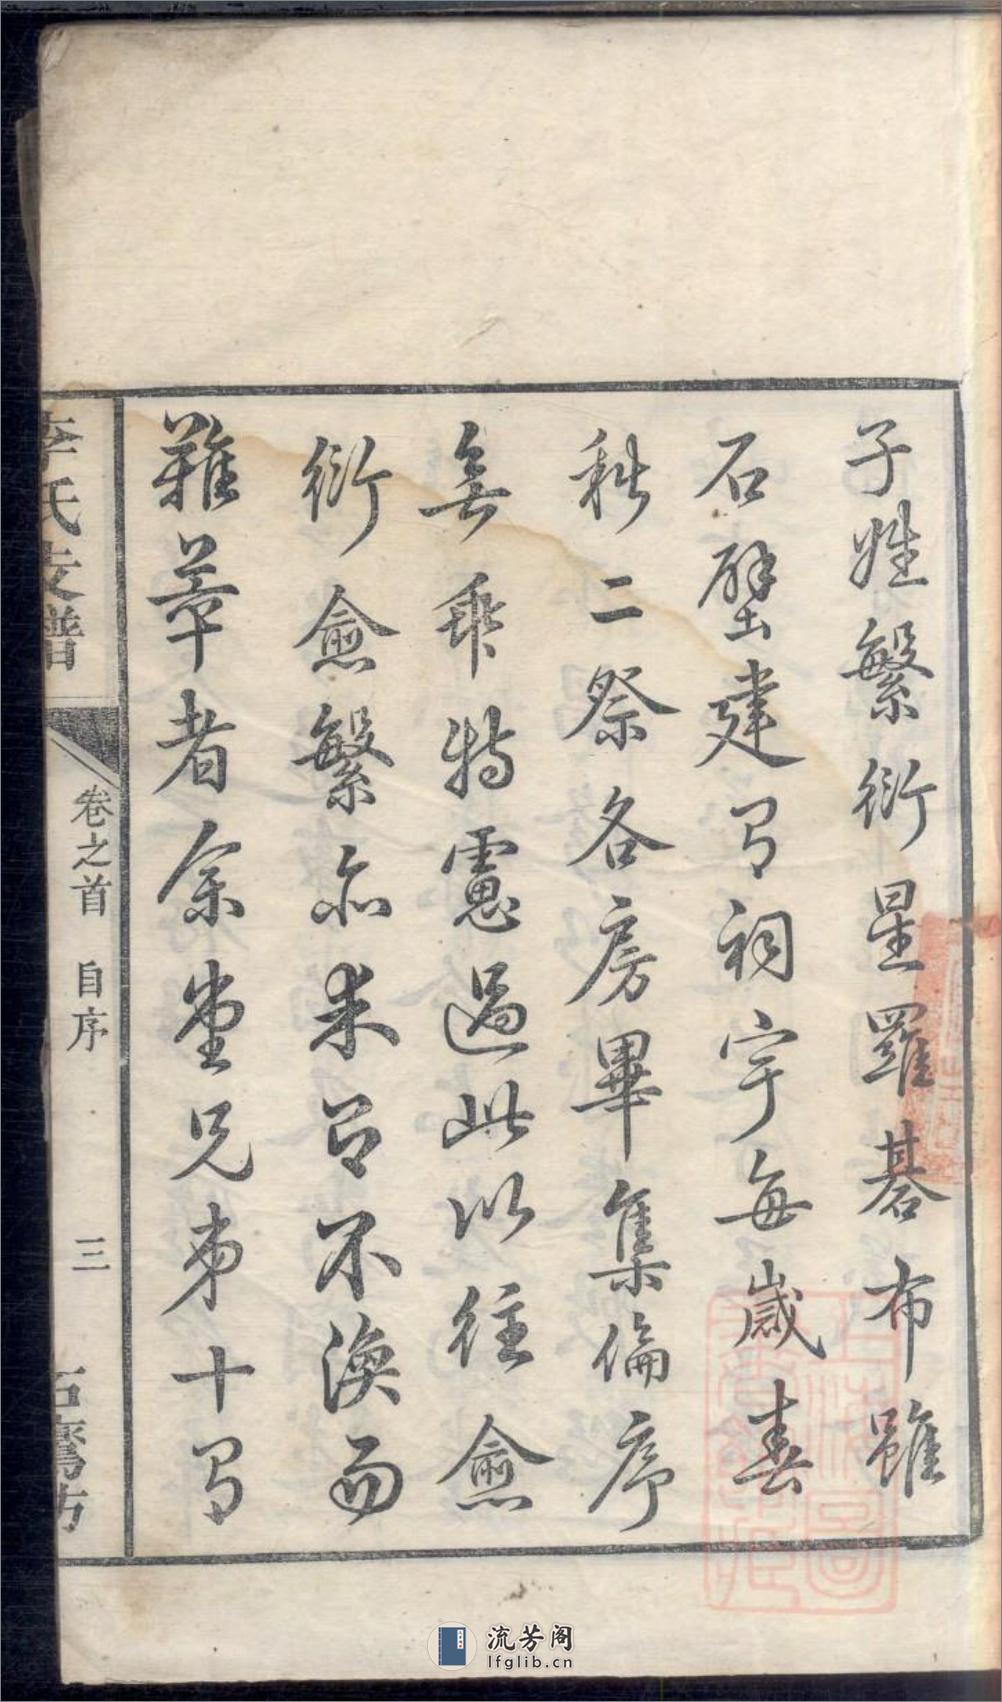 子姓繁衍星羅碁布雖
石壁建有祠宇每歲春
秋二祭各房畢集倫序
無乖特慮過此以往愈
衍愈繁亦未有不渙而
難萃者余堂兄弟十有
李氏支譜
卷之首 自序 三
流芳阁
lfglib.cn